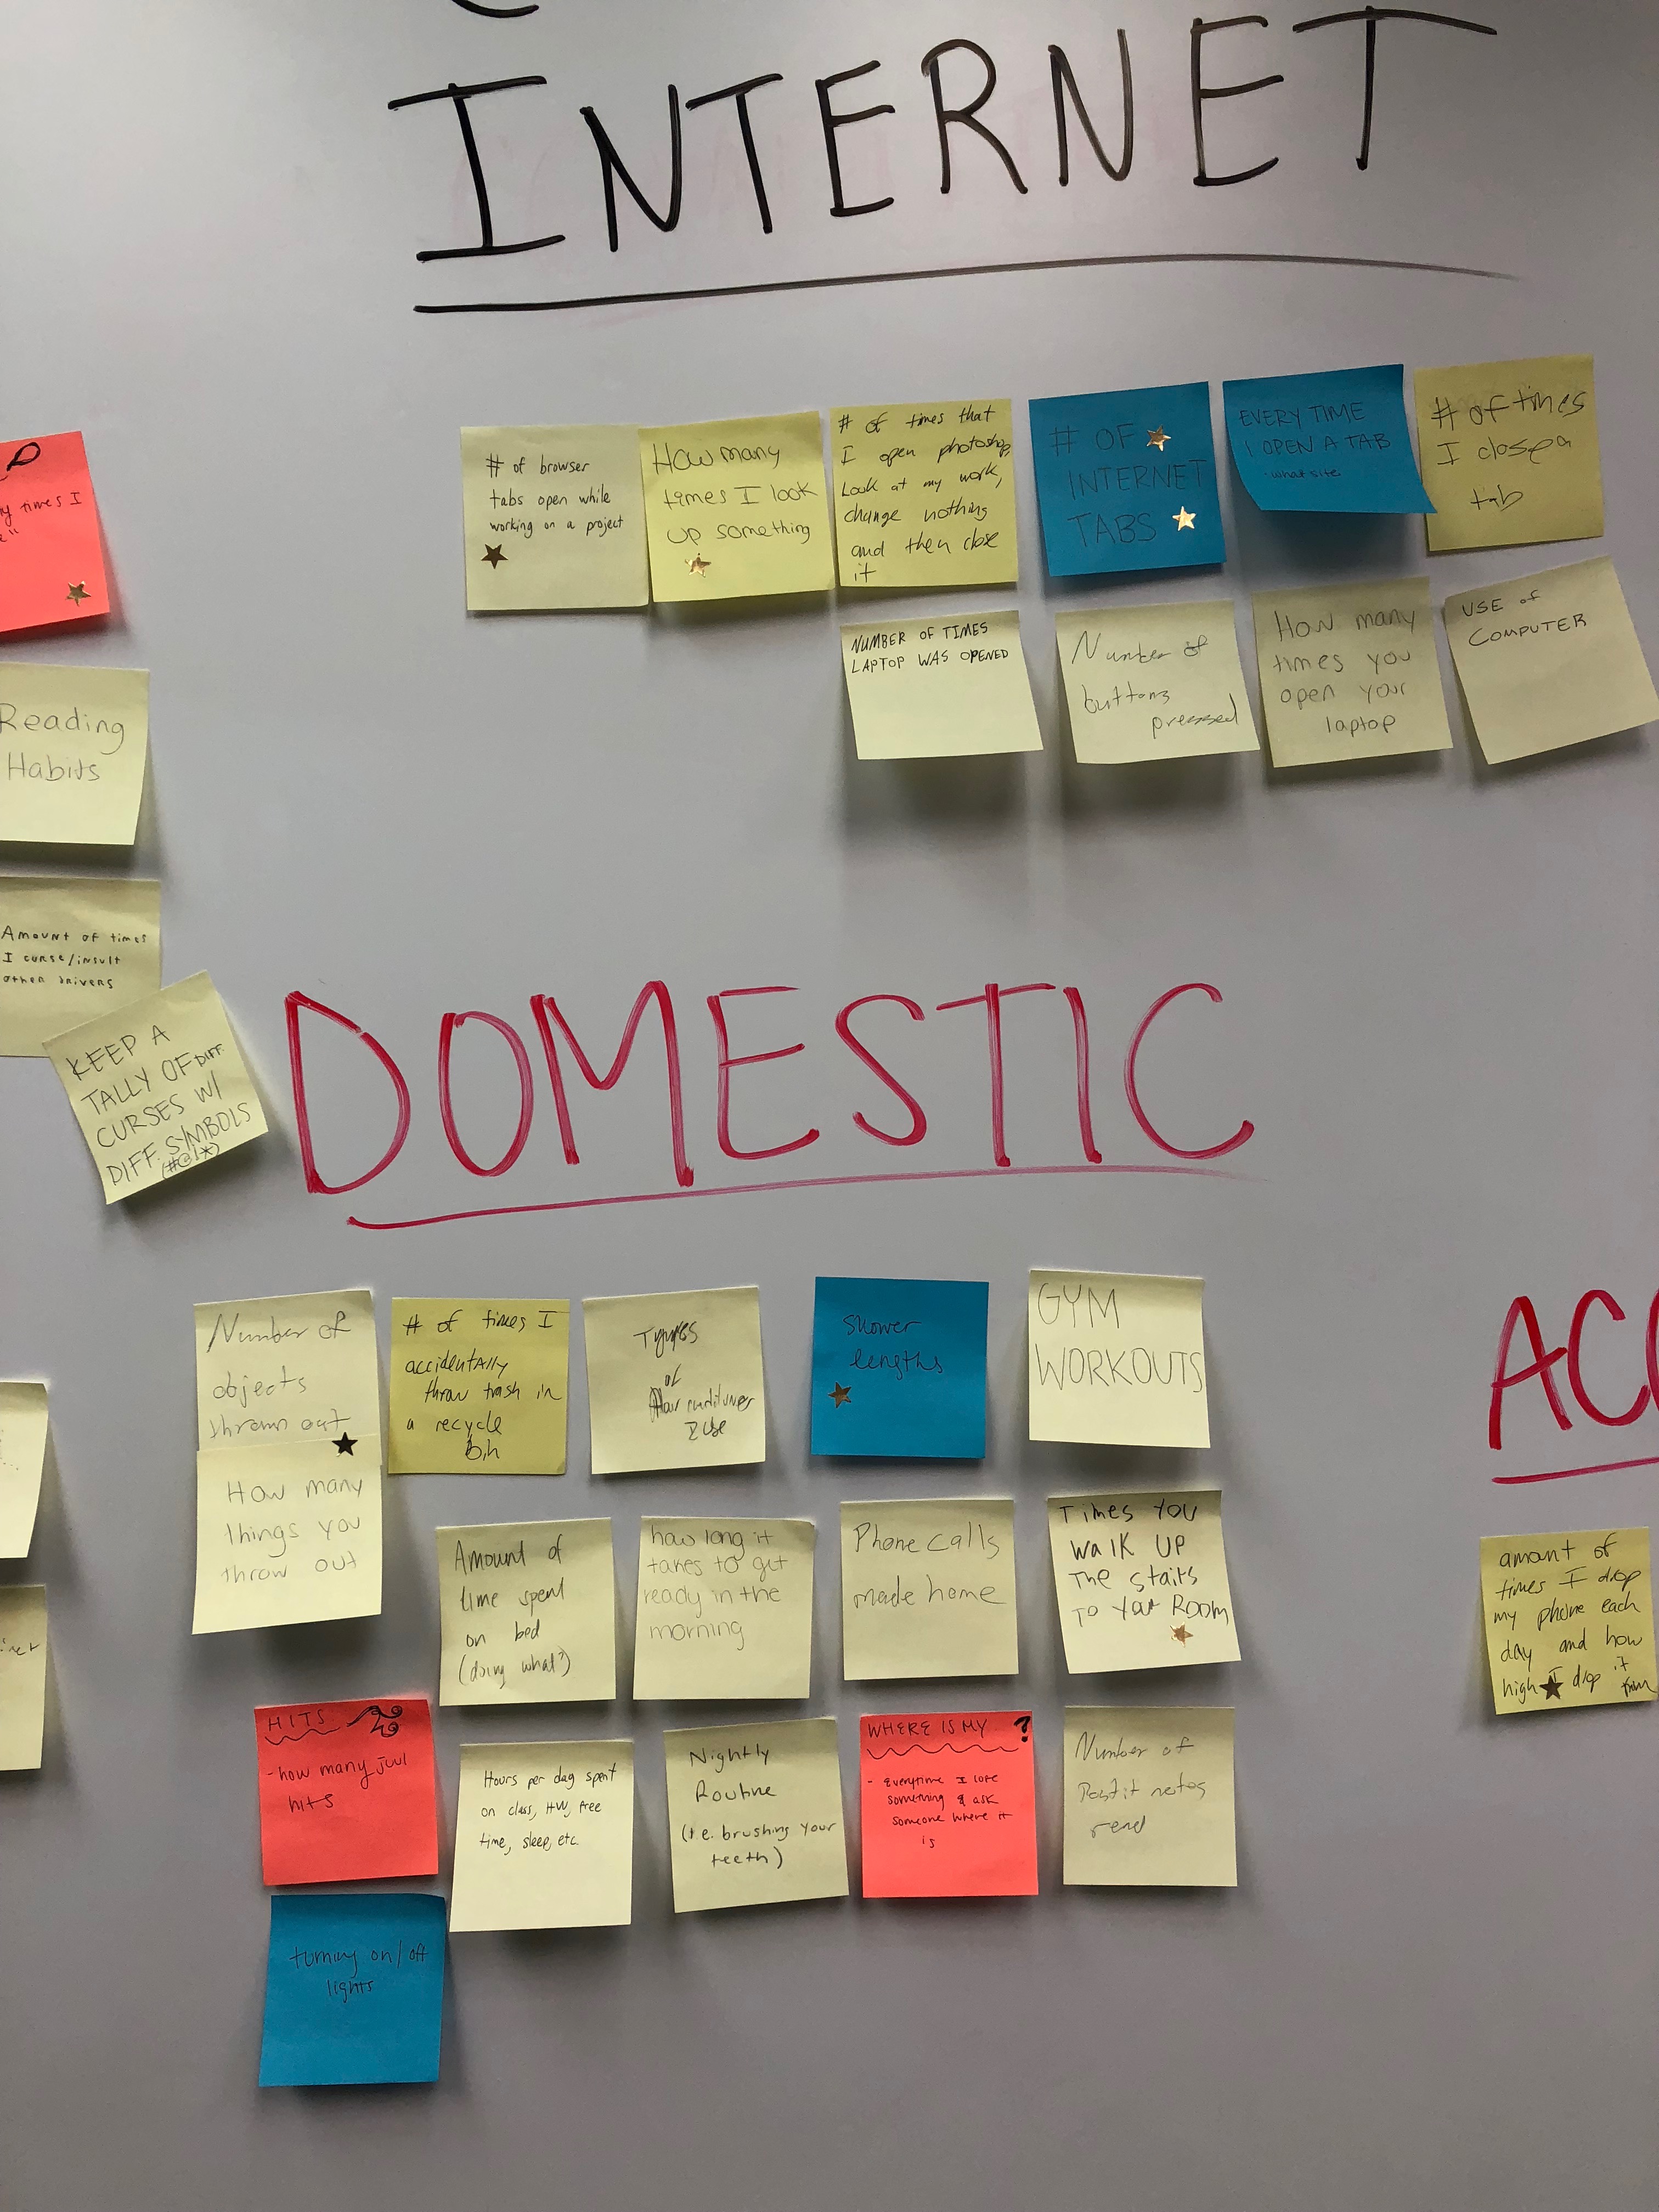 INTERNET
# of browser
tabs open while
working on a project
How many
times I look
up something
# of times that
I open photoshop,
Look at my work,
change nothing
and then close
it
# OF
INTERNET
TABS
EVERY TIME
I OPEN A TAB
-what site
# of times
I close a
tab
NUMBER OF TIMES
LAPTOP WAS OPENED
Number of
buttons
pressed
How many
times you
open your
laptop
USE of
COMPUTER
times I
Reading
Habits
Amount of times
I curse/insult
other drivers
KEEP A
TALLY OF DIFF.
CURSES W/
DIFF. SYMBOLS
(#@!*)
DOMESTIC
Number of
objects
thrown out
How many
things you
throw out
# of times I
accidentally
throw trash in
a recycle
bin
Types
of
Hair conditioner
I use
shower
lengths
GYM
WORKOUTS
Amount of
time spent
on bed
(doing what?)
how long it
takes to get
ready in the
morning
Phone calls
made home
Times you
walk up
the stairs
to your Room
HITS
-how many juul
hits
Hours per day spent
on class, HW, free
time, sleep, etc.
Nightly
Routine
(i.e. brushing your
teeth)
WHERE IS MY ?
- everytime I lose
something & ask
someone where it
is
Number of
Post it notes
read
turning on/off
lights
ACC
amount of
times I drop
my phone each
day and how
high I drop it
from